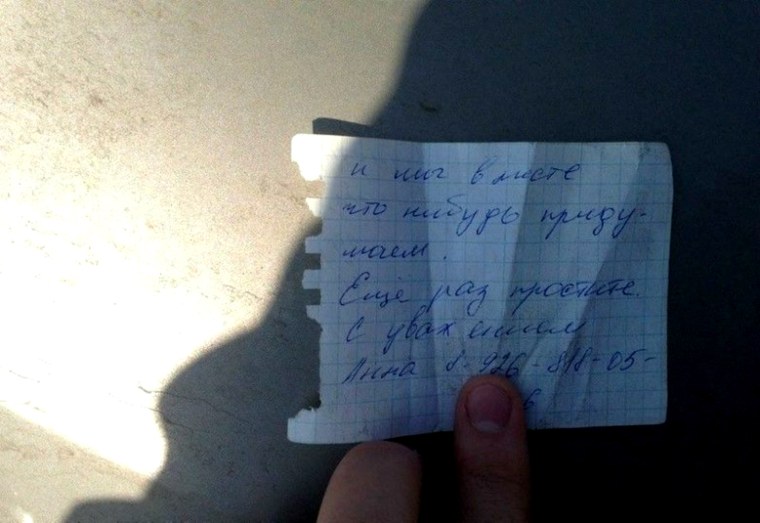 и мы вместе
что нибудь приду-
маем.
Еще раз простите.
С уважением
Анна 8-926-818-05-
6